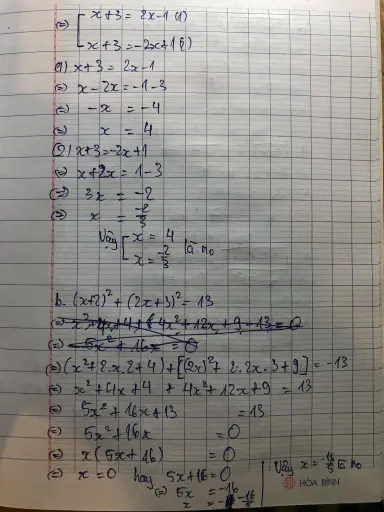 (=) [ x+3 = 2x-1 (1)
x+3 = -2x+1 (2)
(1) x+3 = 2x-1
(=) x-2x = -1-3
(=) -x = -4
(=) x = 4
(2) x+3 = -2x+1
(=) x+2x = 1-3
(=) 3x = -2
(=) x = -2/3
Vậy [ x = 4
x = -2/3 là no
b. (x+2)² + (2x+3)² = 13
(=) x²+4x+4+4x²+12x+9-13=0
(=) 5x²+16x=0
(=) (x²+2.x.2+4)+[(2x)²+2.2x.3+9] = -13
(=) x²+4x+4 + 4x²+12x+9 = 13
(=) 5x²+16x+13 = 13
(=) 5x²+16x = 0
(=) x(5x+16) = 0
(=) x=0 hay 5x+16=0
(=) 5x = -16
x = -16/5
Vậy x = -16/5 là no
HÒA BÌNH